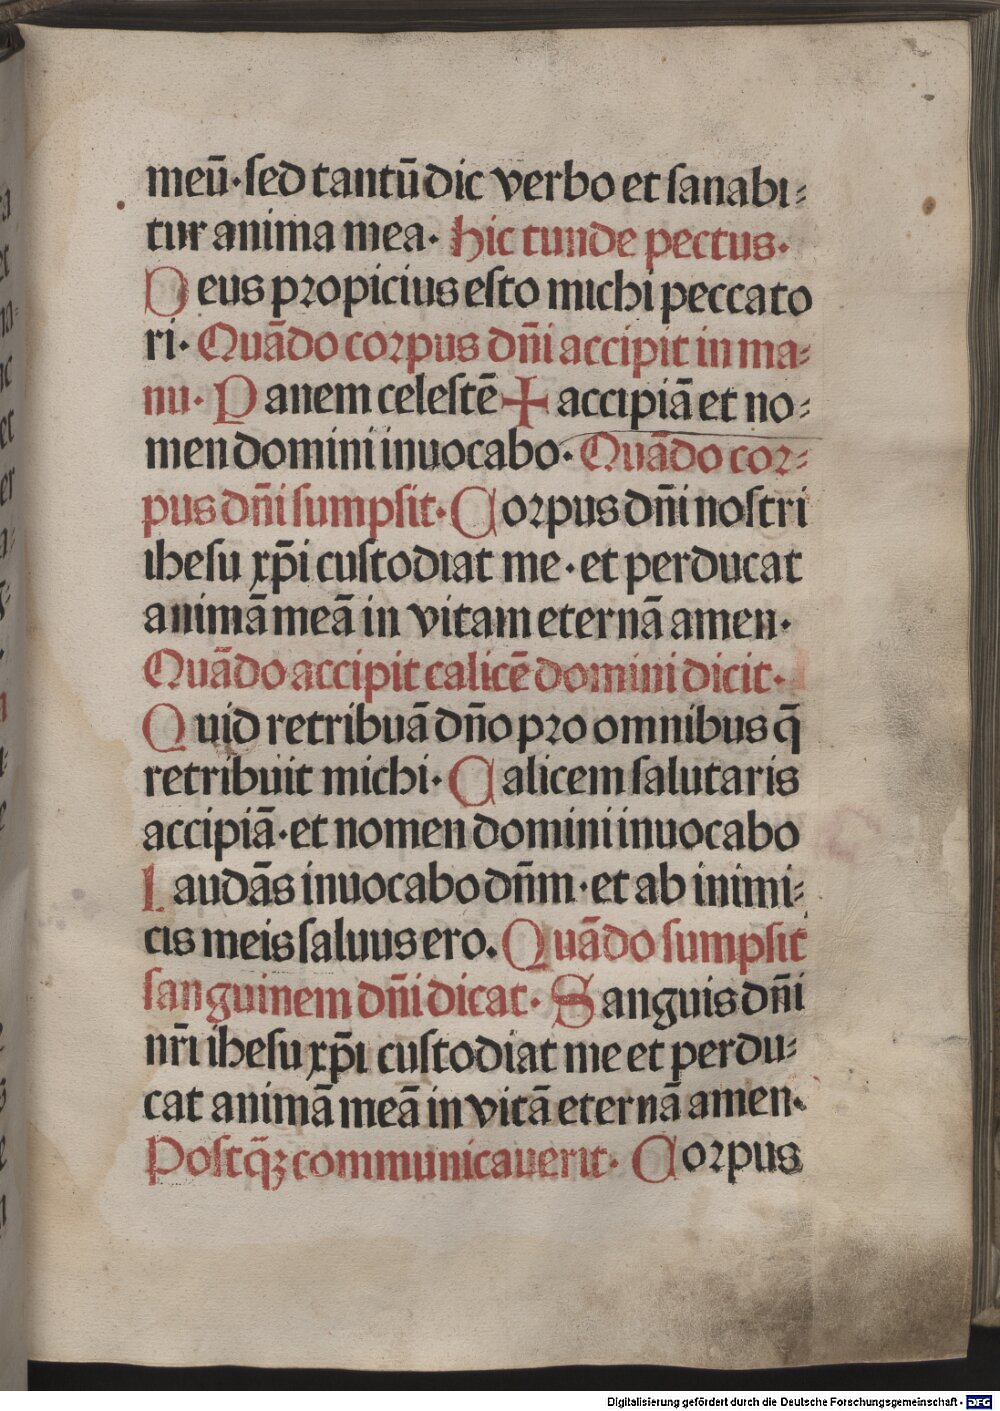 meū·sed tantū dic verbo et sanabi⸗
tur anima mea· hic tunde pectus·
Deus propicius esto michi peccato
ri· Quādo corpus dn̄i accipit in ma⸗
nu· Panem celestē ✠ accipiā et no⸗
men domini inuocabo· Quādo cor⸗
pus dn̄i sumpsit· Corpus dn̄i nostri
ihesu xp̄i custodiat me· et perducat
animā meā in vitam eternā amen·
Quādo accipit calicē domini dicit·
Quid retribuā dn̄o pro omnibus q̄
retribuit michi· Calicem salutaris
accipiā·et nomen domini inuocabo
Laudās inuocabo dn̄m·et ab inimi⸗
cis meis saluus ero. Quādo sumpsit
sanguinem dn̄i dicat· Sanguis dn̄i
nr̄i ihesu xp̄i custodiat me et perdu⸗
cat animā meā in vitā eternā amen·
Postq̄ꝫ communicauerit· Corpus
Digitalisierung gefördert durch die Deutsche Forschungsgemeinschaft - DFG